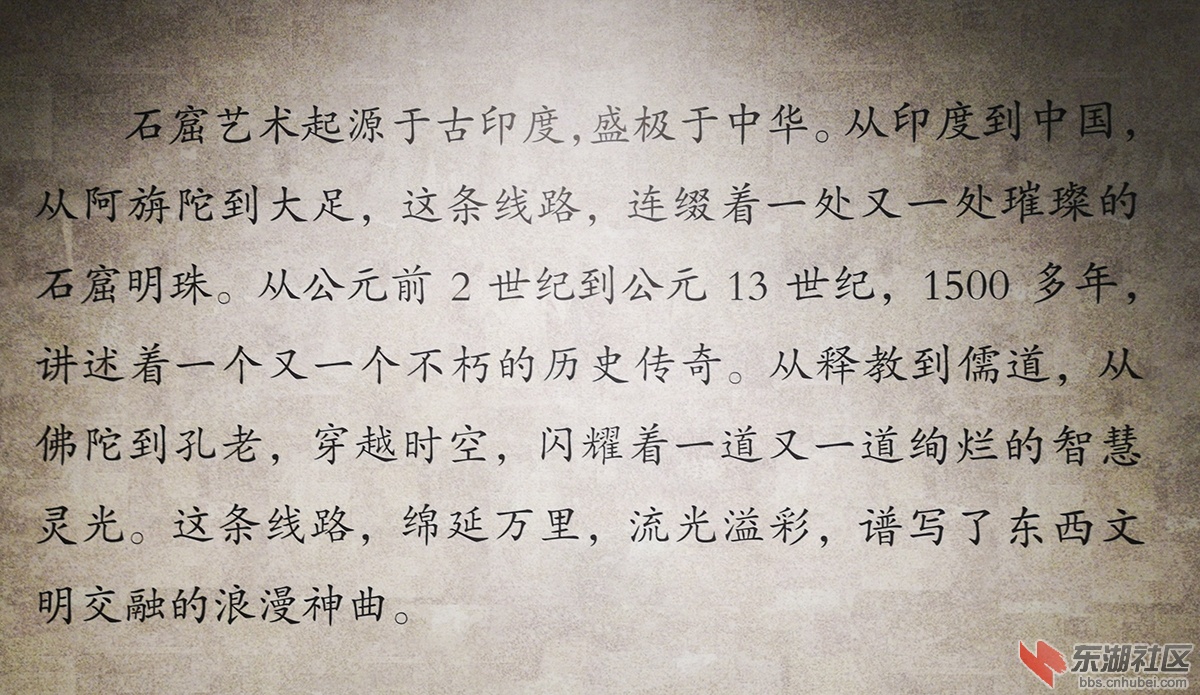 石窟艺术起源于古印度,盛极于中华。从印度到中国,
从阿旃陀到大足，这条线路，连缀着一处又一处璀璨的
石窟明珠。从公元前 2 世纪到公元 13 世纪，1500 多年，
讲述着一个又一个不朽的历史传奇。从释教到儒道，从
佛陀到孔老，穿越时空，闪耀着一道又一道绚烂的智慧
灵光。这条线路，绵延万里，流光溢彩，谱写了东西文
明交融的浪漫神曲。
东湖社区
bbs.cnhubei.com